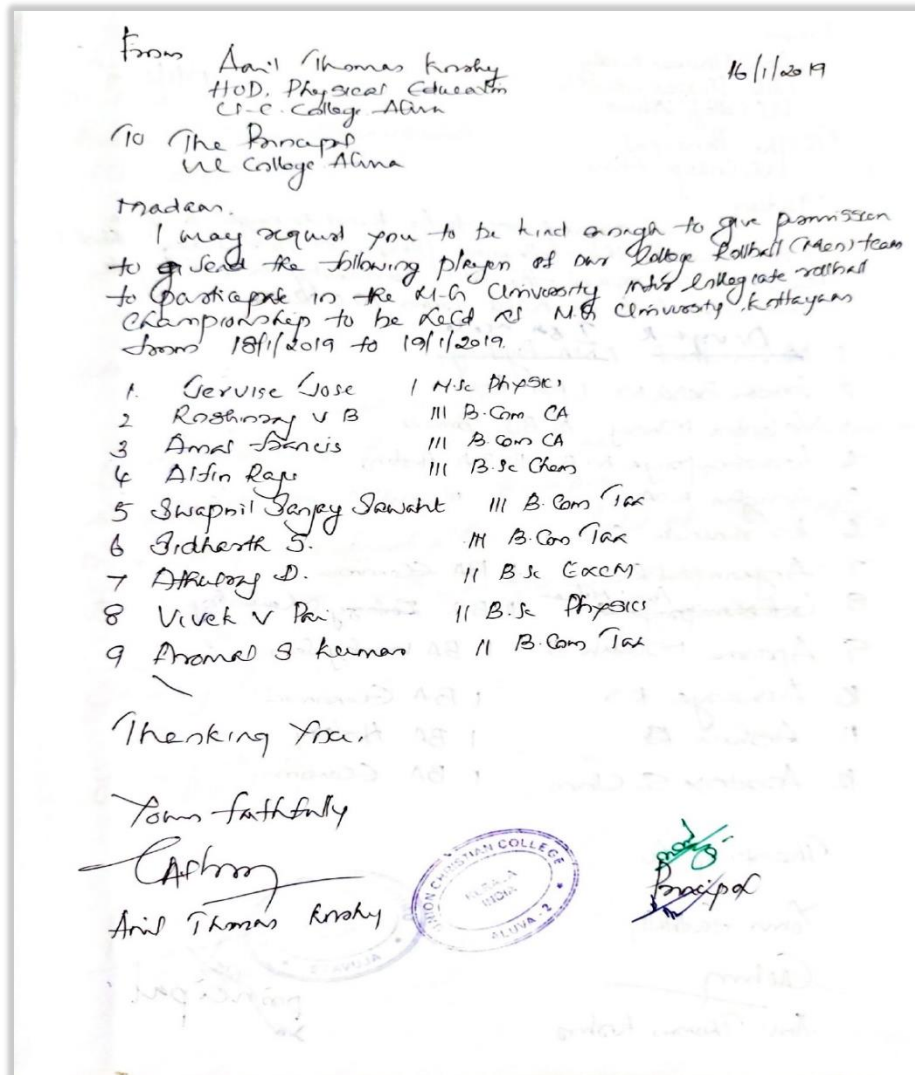 From
Anil Thomas Koshy
16/1/2019
HOD, Physical Education
U-C. College Aluva
To The Principal
UC College Aluva
Madam.
I may request you to be kind enough to give permission
to send the following players of our College Rollball (Men) team
to participate in the M.G University inter collegiate rollball
Championship to be held at M.G University, Kottayam
from 18/1/2019 to 19/1/2019.
1. Jervise Jose I M.Sc Physics
2 Roshinray V B III B.Com CA
3 Amal Francis III B.Com CA
4 Alfin Raju III B.Sc Chem
5 Swapnil Sanjay Sawant III B.Com Tax
6 Sidharth S. III B.Com Tax
7 D. II B Sc
8 Vivek V Pai II B.Sc Physics
9 Aromal S Kumar II B.Com Tax
Thanking You.
Yours faithfully
Anil Thomas Koshy
UNION CHRISTIAN COLLEGE
KERALA
INDIA
ALUVA - 2
Principal